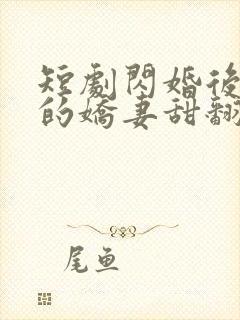 短劇閃婚後
的嬌妻甜翻
尾鱼